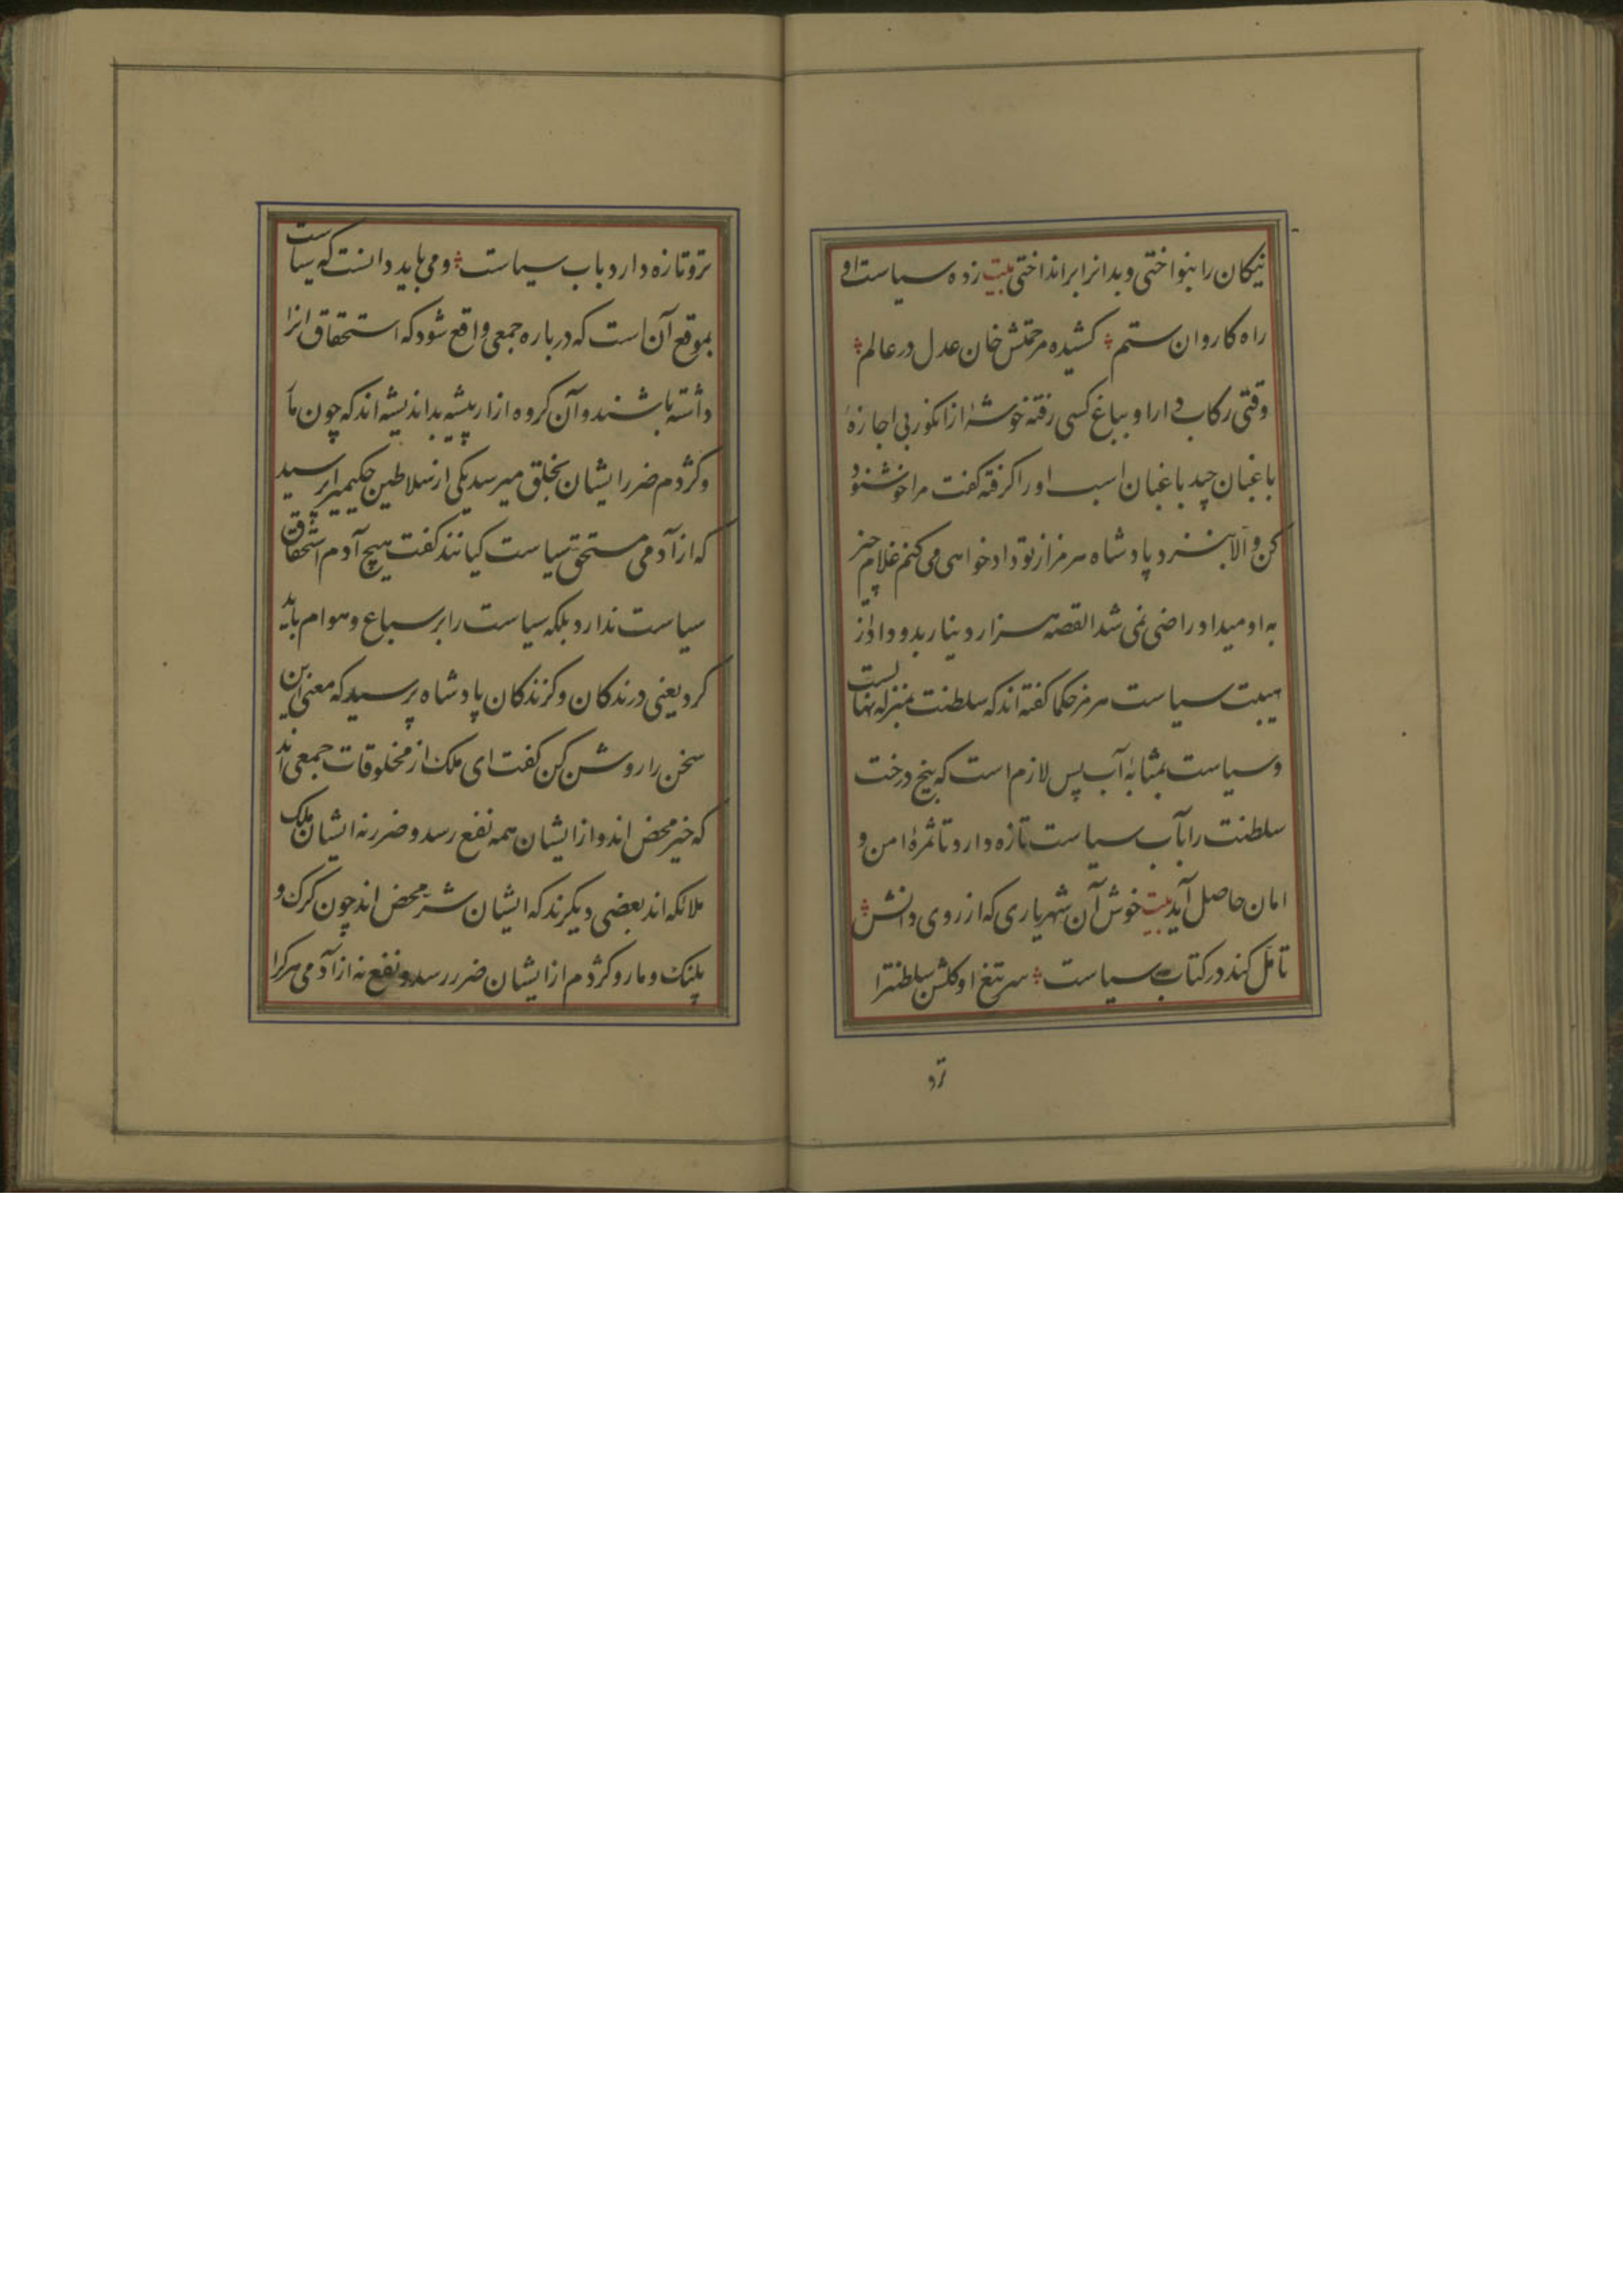 نیکان را بنواختی و بدانرا برانداختی بیت زده سیاست او
راه کاروان ستم کشیده مرحمتش خان عدل در عالم
وقتی رکاب دار او بباغ کسی رفته خوشهٔ از انکور بی اجازهٔ
باغبان چید باغبان اسب او را کرفته کفت مرا خوشنود
کن و الا بنزد پادشاه هرمز از تو دادخواهی می کنم غلام چیز
به او میداد راضی نمی شد القصه هزار دینار بدو داد از
هیبت سیاست هرمز حکما کفته اند که سلطنت بمنزله نهالست
و سیاست بمثابهٔ آب پس لازم است که بیخ درخت
سلطنت را بآب سیاست تازه دارد تا ثمرهٔ امن و
امان حاصل آید بیت خوش آن شهریاری که از روی دانش
تأمل کند در کتاب سیاست سر تیغ او کلشن سلطنترا
ترو
تر و تازه دارد بآب سیاست و می باید دانست که سیاست
بموقع آن است که درباره جمعی واقع شود که استحقاق انرا
داشته باشند و آن کروه ازار پیشه بد اندیشه اند که چون مار
و کژدم ضرر ایشان بخلق میرسد یکی از سلاطین حکیمیرا پرسید
که از آدمی مستحق سیاست کیانند کفت هیچ آدم استحقاق
سیاست ندارد بلکه سیاست را بر سباع و هوام باید
کرد یعنی درندکان و کزندکان پادشاه پرسید که معنی این
سخن را روشن کن کفت ای ملک از مخلوقات جمعی اند
که خیر محض اند و از ایشان همه نفع رسد و ضرر نه ایشان ملک
ملائکه اند بعضی دیکرند که ایشان شر محض اند چون کرک و
پلنک و مار و کژدم از ایشان ضرر رسد و نفع نه از آدمی هر کرا